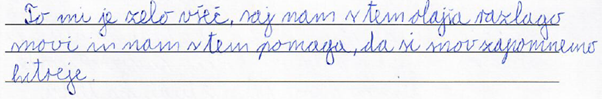 To mi je zelo všeč, saj nam s tem olajša razlago
snovi in nam s tem pomaga, da si snov zapomnemo
hitreje.